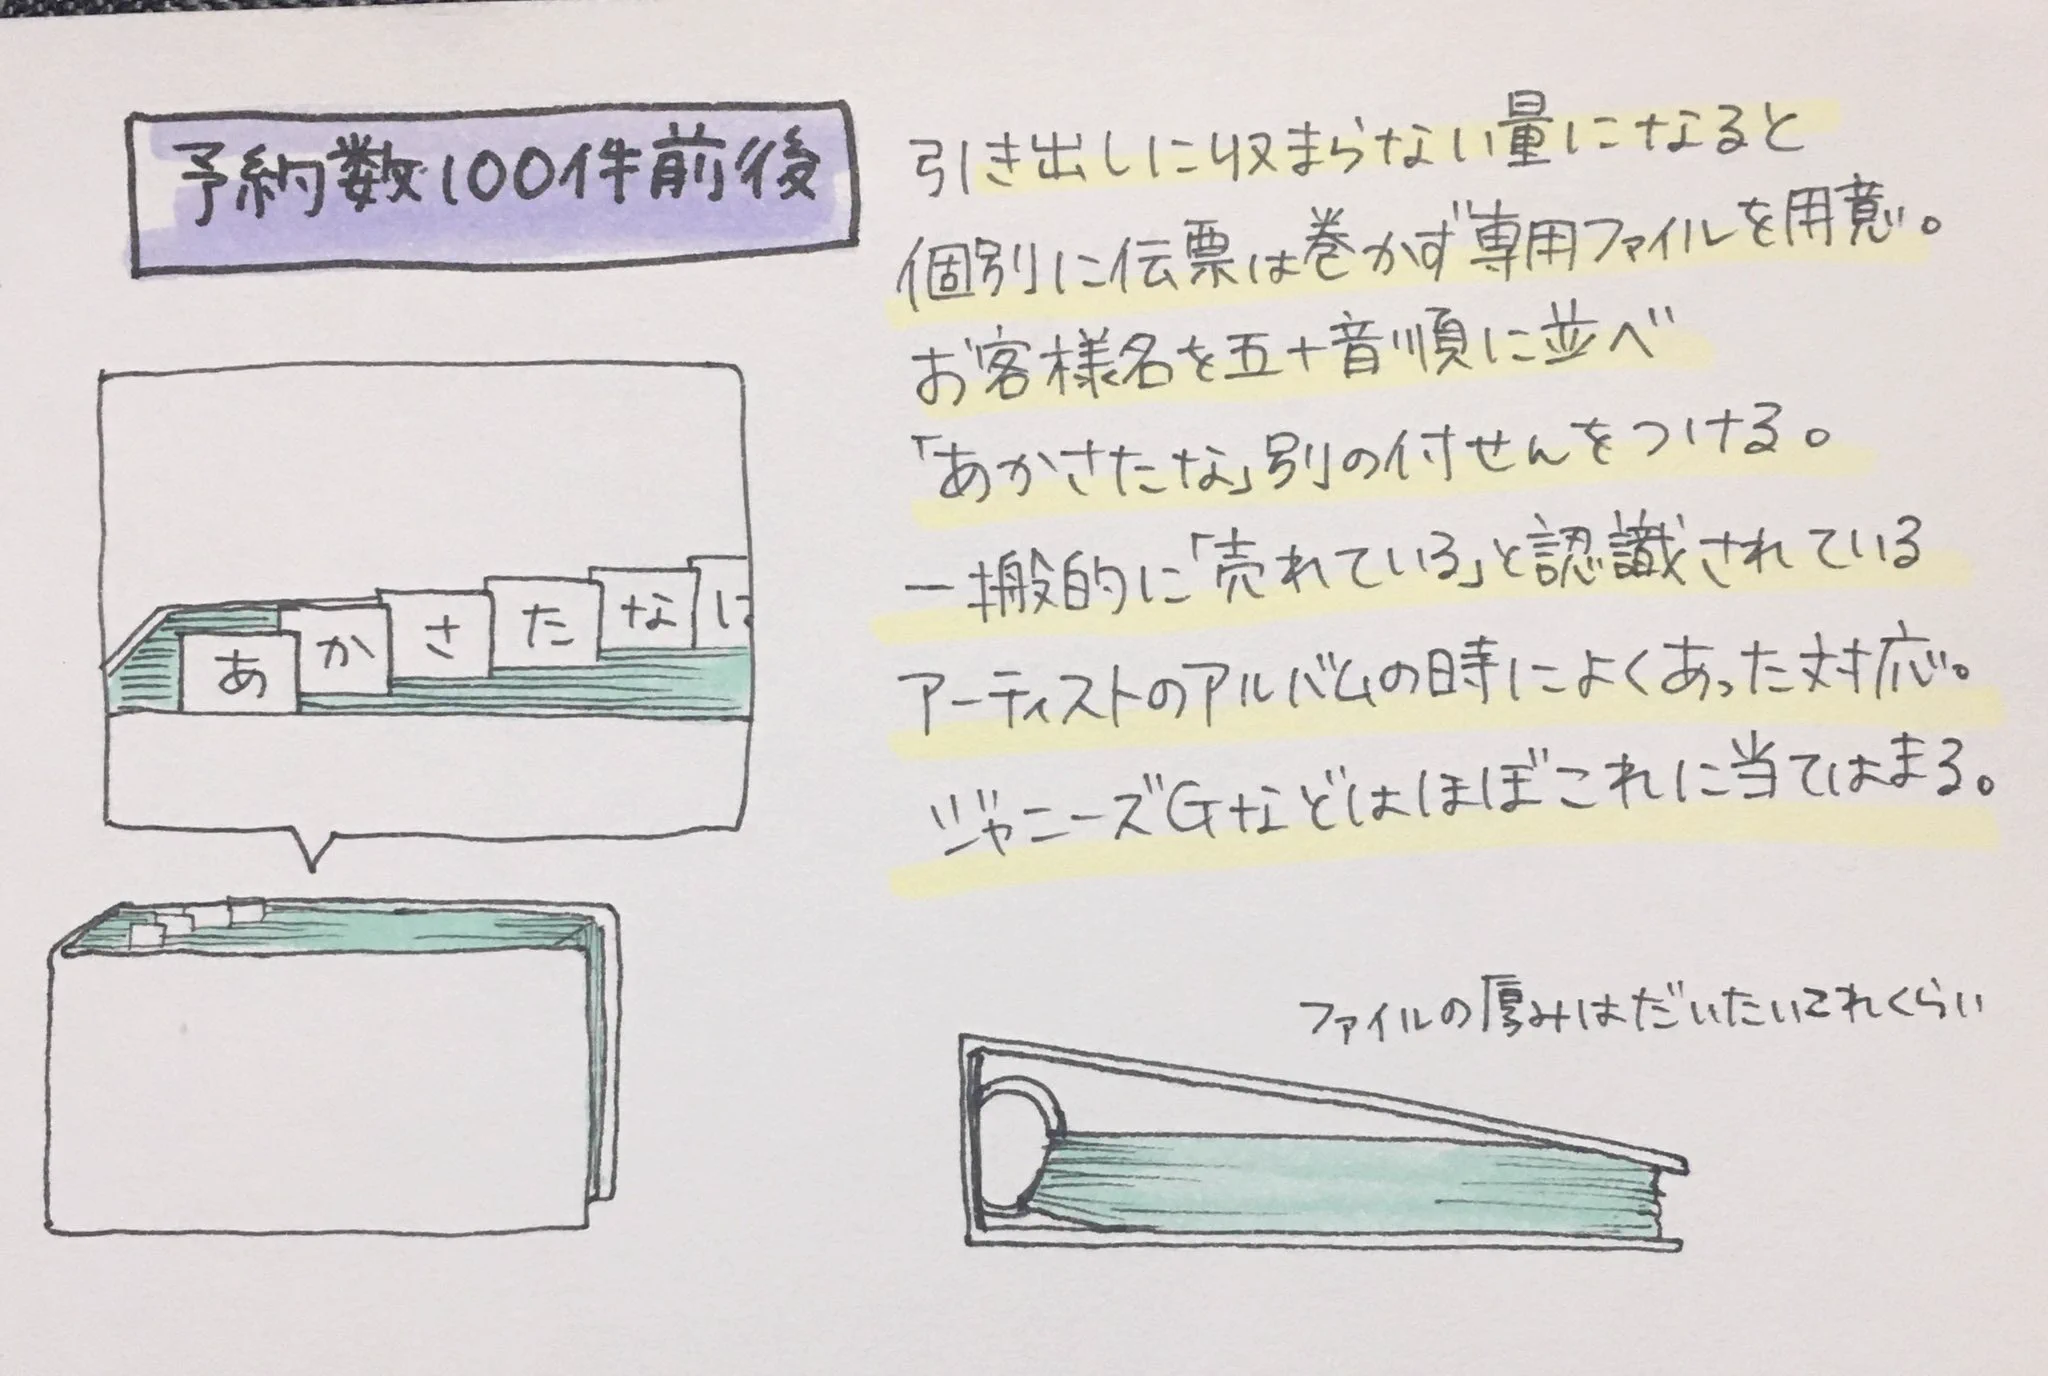 予約数100件前後
引き出しに収まらない量になると
個別に伝票は巻かず専用ファイルを用意。
お客様名を五十音順に並べ
「あかさたな」別の付せんをつける。
一般的に「売れている」と認識されている
アーティストのアルバムの時によくあった対応。
ジャニーズGなどはほぼこれに当てはまる。
あ
か
さ
た
な
ファイルの厚みはだいたいこれくらい